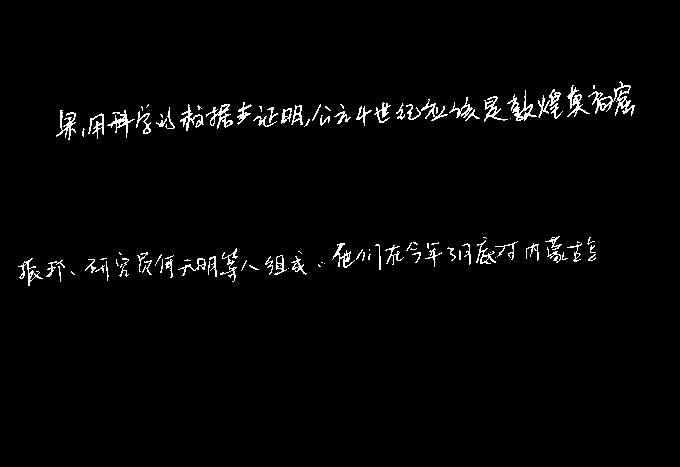 果,用科学的数据来证明,公元4世纪应该是敦煌莫高窟
振邦、研究员何天明等人组成。他们在今年3月底对内蒙古